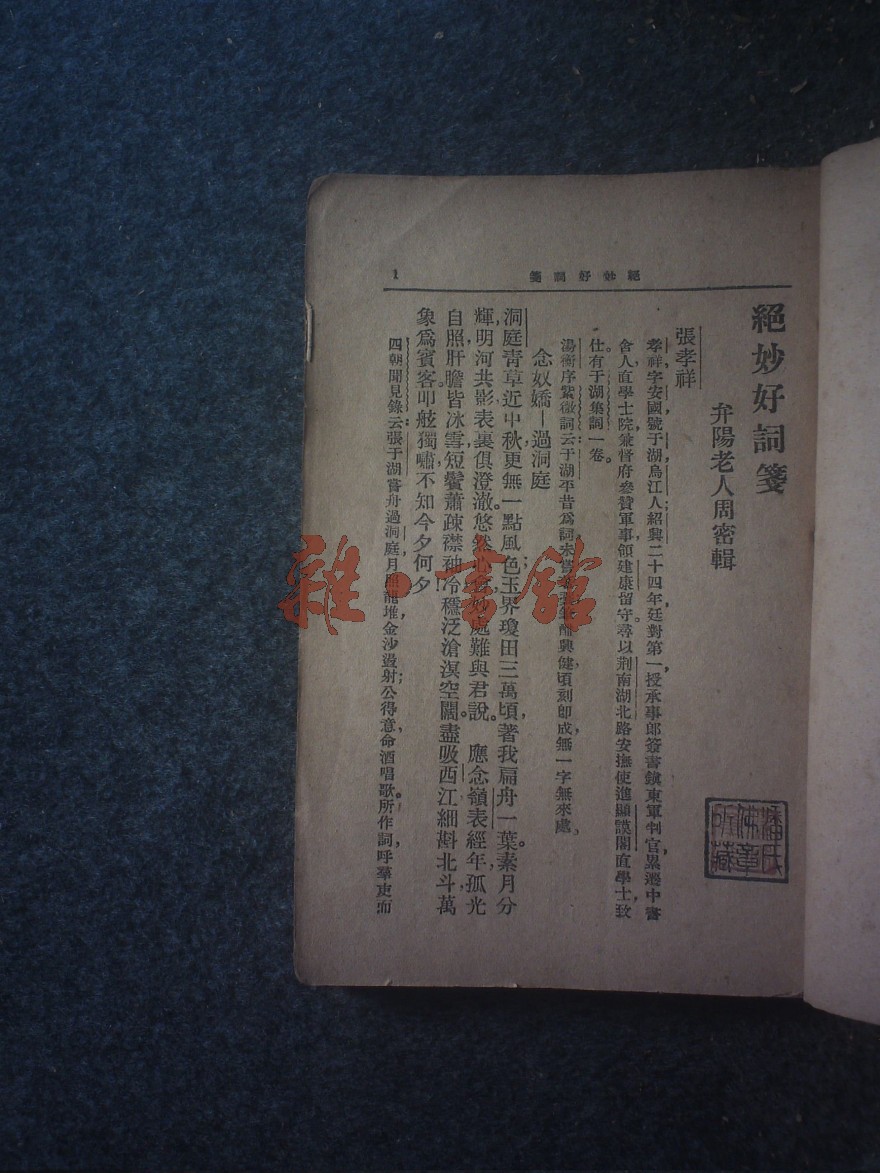 絕妙好詞箋
1
絕妙好詞箋
弁陽老人周密輯
張孝祥
孝祥字安國，號于湖，烏江人，紹興二十四年廷對第一，授承事郎，簽書鎮東軍判官，累遷中書
舍人，直學士院，兼督府參贊軍事，領建康留守，尋以荆南湖北路安撫使進顯謨閣直學士，致
仕。有于湖集詞一卷。
湯衡序紫微詞云：于湖平昔爲詞，未嘗著藁，筆酣興健，頃刻即成，無一字無來處。
念奴嬌—過洞庭
洞庭青草，近中秋，更無一點風色。玉界瓊田三萬頃，著我扁舟一葉。素月分
輝，明河共影，表裏俱澄澈。悠然心會，妙處難與君說。　應念嶺表經年，孤光
自照，肝膽皆冰雪。短鬢蕭疎襟袖冷，穩泛滄溟空闊。盡吸西江，細斟北斗，萬
象爲賓客。叩舷獨嘯，不知今夕何夕！
四朝聞見錄云：張于湖嘗舟過洞庭，月照龍堆，金沙盪射，公得意命酒，唱歌所作詞，呼羣吏而
潘氏
佛章
所藏
雜·書館